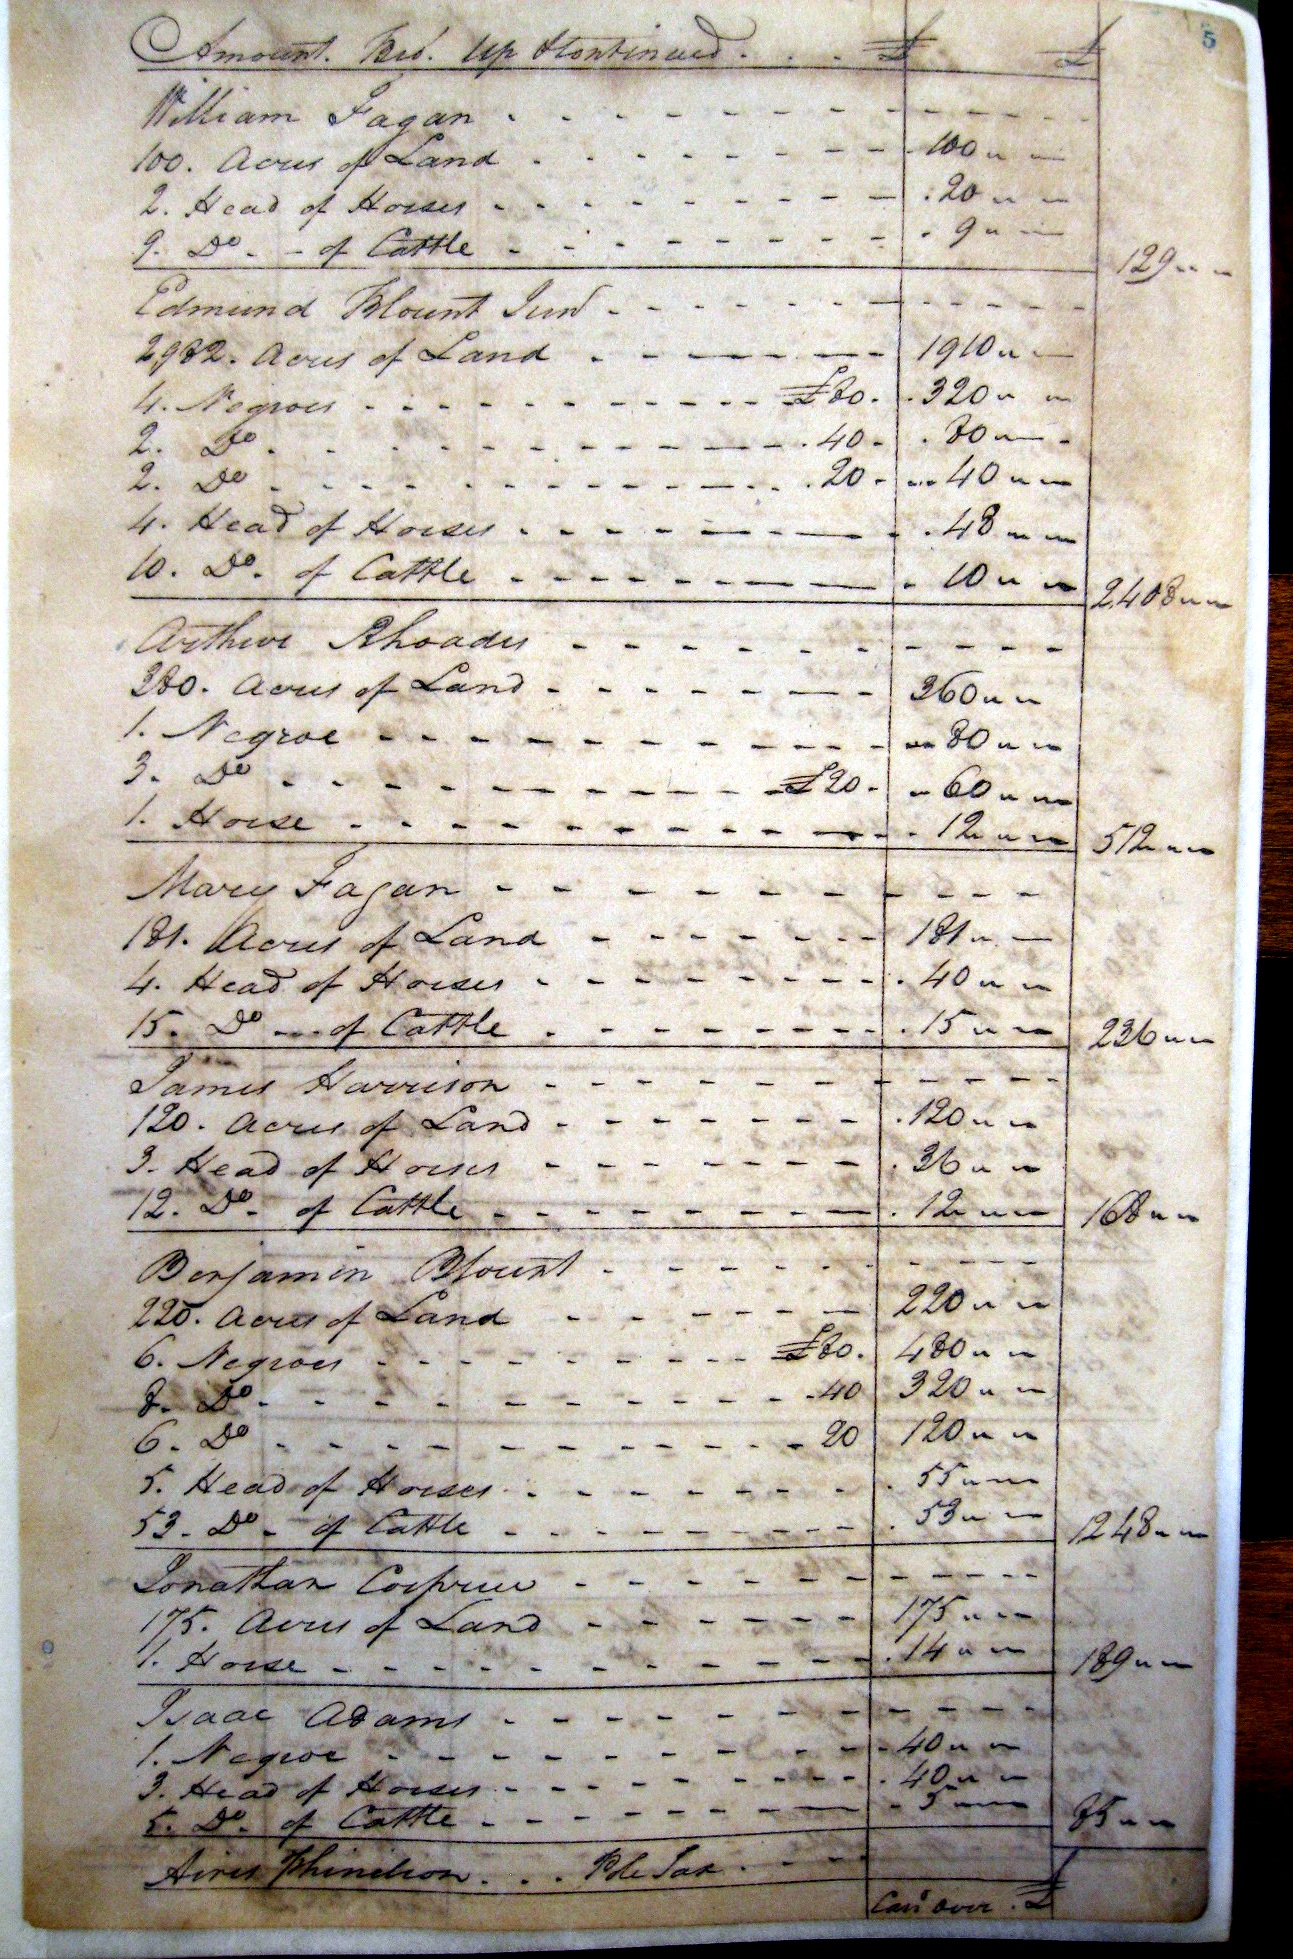 5
Amount. Bro.t Up & Continued . . . £ £
William Fagan
100. Acres of Land 100 " "
2. Head of Horses 20 " "
9. Do. of Cattle 9 " "
129 " "
Edmund Blount Junr
2982. Acres of Land 1910 " "
4. Negroes £80. 320 " "
2. Do. 40. 80 " "
2. Do 20. 40 " "
4. Head of Horses 48 " "
10. Do. of Cattle 10 " "
2408 " "
Arthur Rhoades
380. Acres of Land 360 " "
1. Negroe 80 " "
3. Do £20. 60 " "
1. Horse 12 " "
512 " "
Mary Fagan
181. Acres of Land 181 " "
4. Head of Horses 40 " "
15. Do of Cattle 15 " "
236 " "
James Harrison
120. Acres of Land 120 " "
3. Head of Horses 36 " "
12. Do. of Cattle 12 " "
168 " "
Benjamin Blount
220. Acres of Land 220 " "
6. Negroes £80. 480 " "
8. Do. 40 320 " "
6. Do 20 120 " "
5. Head of Horses 55 " "
53. Do. of Cattle 53 " "
1248 " "
Jonathan
175. Acres of Land 175 " "
1. Horse 14 " "
189 " "
Isaac Adams
1. Negroe 40 " "
3. Head of Horses 40 " "
5. Do. of Cattle 5 " "
85 " "
Pole Tax
Carr.d Over . £